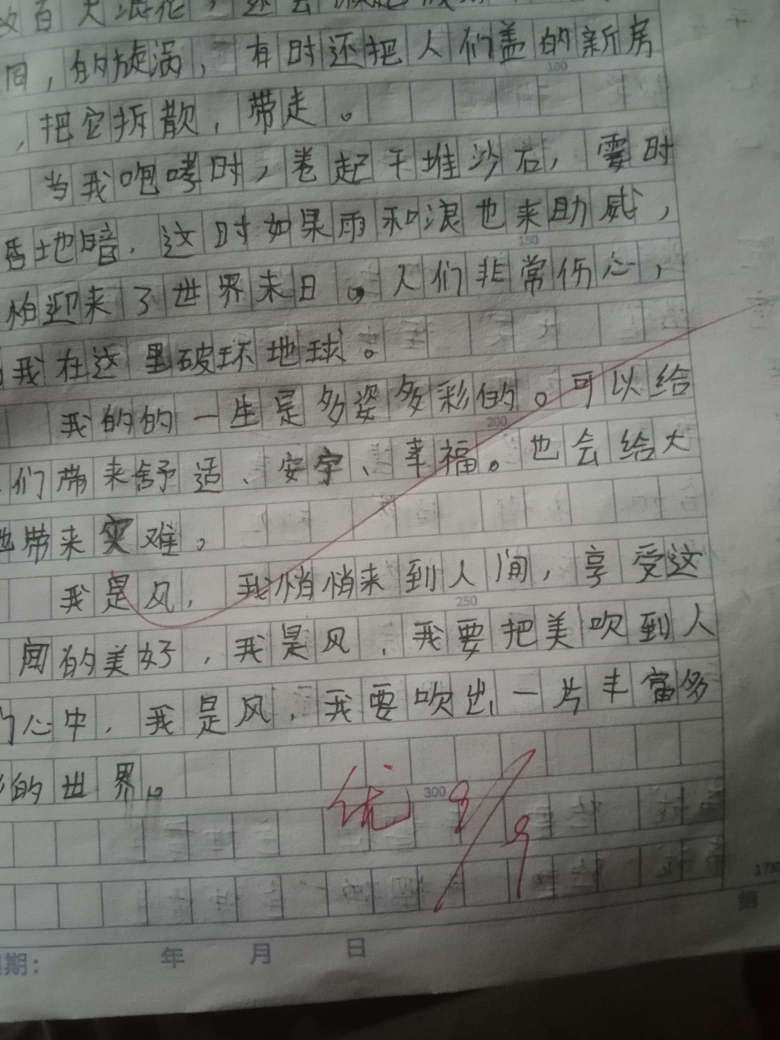 百大浪花，还会
的旋涡，有时还把人们盖的新房
，把它拆散，带走。
100
当我咆哮时，卷起千堆沙石，霎时
地暗．这时如果雨和浪也来助威，
150
怕迎来了世界末日。人们非常伤心，
我在这里破环地球。
我的的一生是多姿多彩的。可以给
200
们带来舒适、安宁、幸福。也会给大
带来灾难。
我是风，我悄悄来到人间，享受这
250
间的美好，我是风，我要把美吹到人
心中，我是风，我要吹出一片丰富多
的世界。
300
优 9/9
期： 年 月 日
第